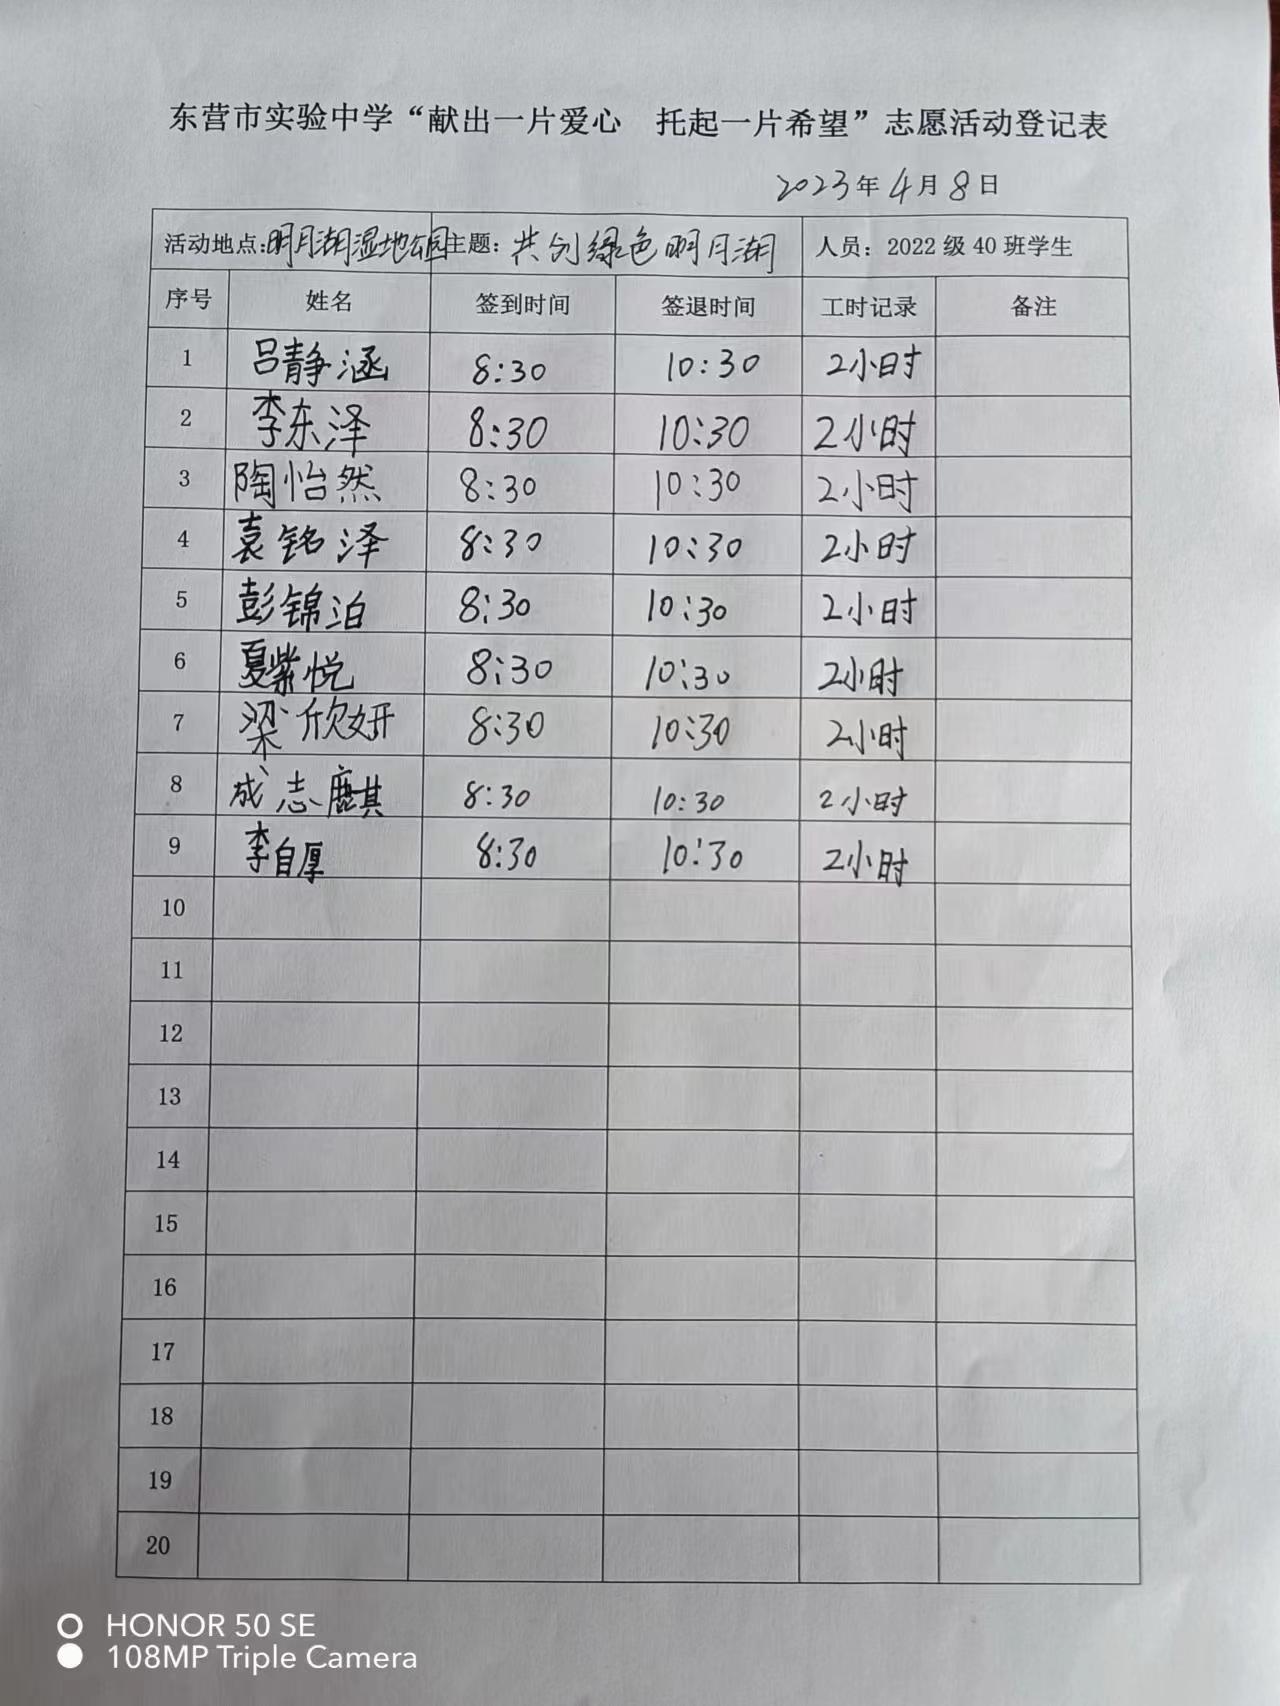 东营市实验中学“献出一片爱心 托起一片希望”志愿活动登记表
2023年4月8日
活动地点:明月湖湿地公园 主题：共创绿色明月湖 人员：2022级40班学生
序号 姓名 签到时间 签退时间 工时记录 备注
1 吕静涵 8:30 10:30 2小时
2 李东泽 8:30 10:30 2小时
3 陶怡然 8:30 10:30 2小时
4 袁铭泽 8:30 10:30 2小时
5 彭锦泊 8:30 10:30 2小时
6 夏紫悦 8:30 10:30 2小时
7 梁欣妍 8:30 10:30 2小时
8 成志麒 8:30 10:30 2小时
9 李自厚 8:30 10:30 2小时
10
11
12
13
14
15
16
17
18
19
20
HONOR 50 SE
108MP Triple Camera